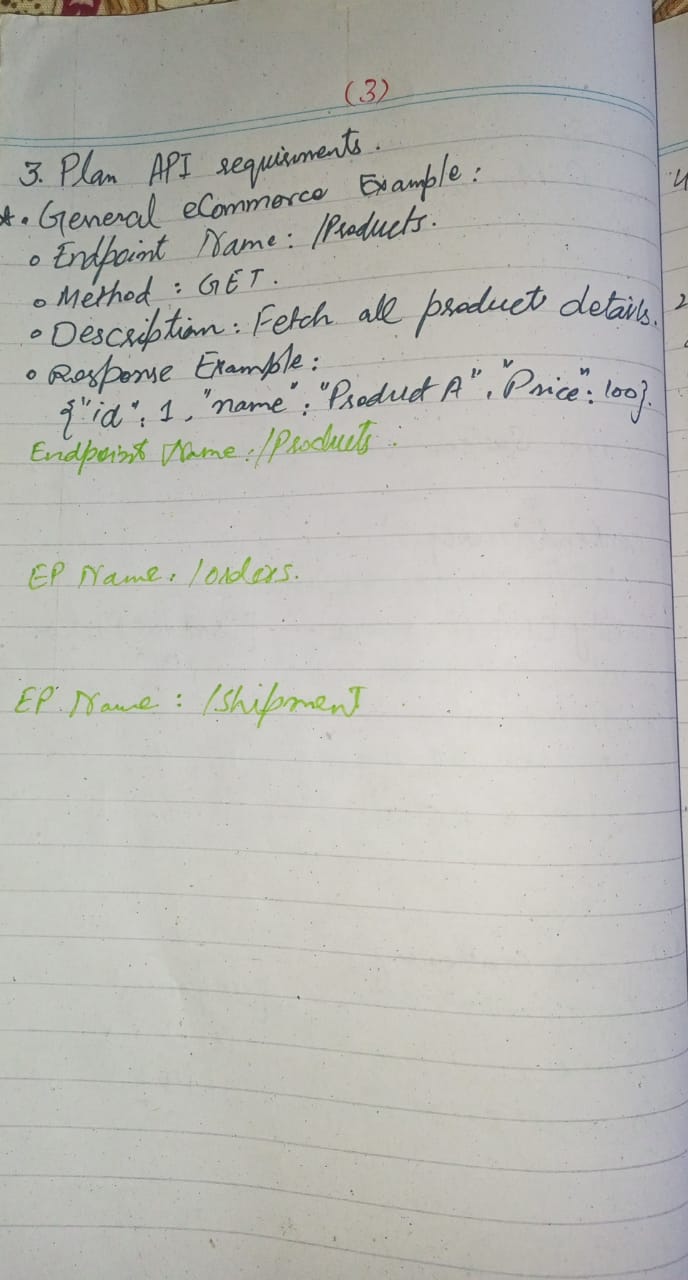 (3)
3. Plan API requirements.
* • General eCommerce Example:
o Endpoint Name: /Products.
o Method: GET.
o Description: Fetch all product details.
o Response Example:
{"id": 1, "name": "Product A", "Price": 100}.
Endpoint Name: /Products:
EP Name: /orders.
EP Name: /Shipment